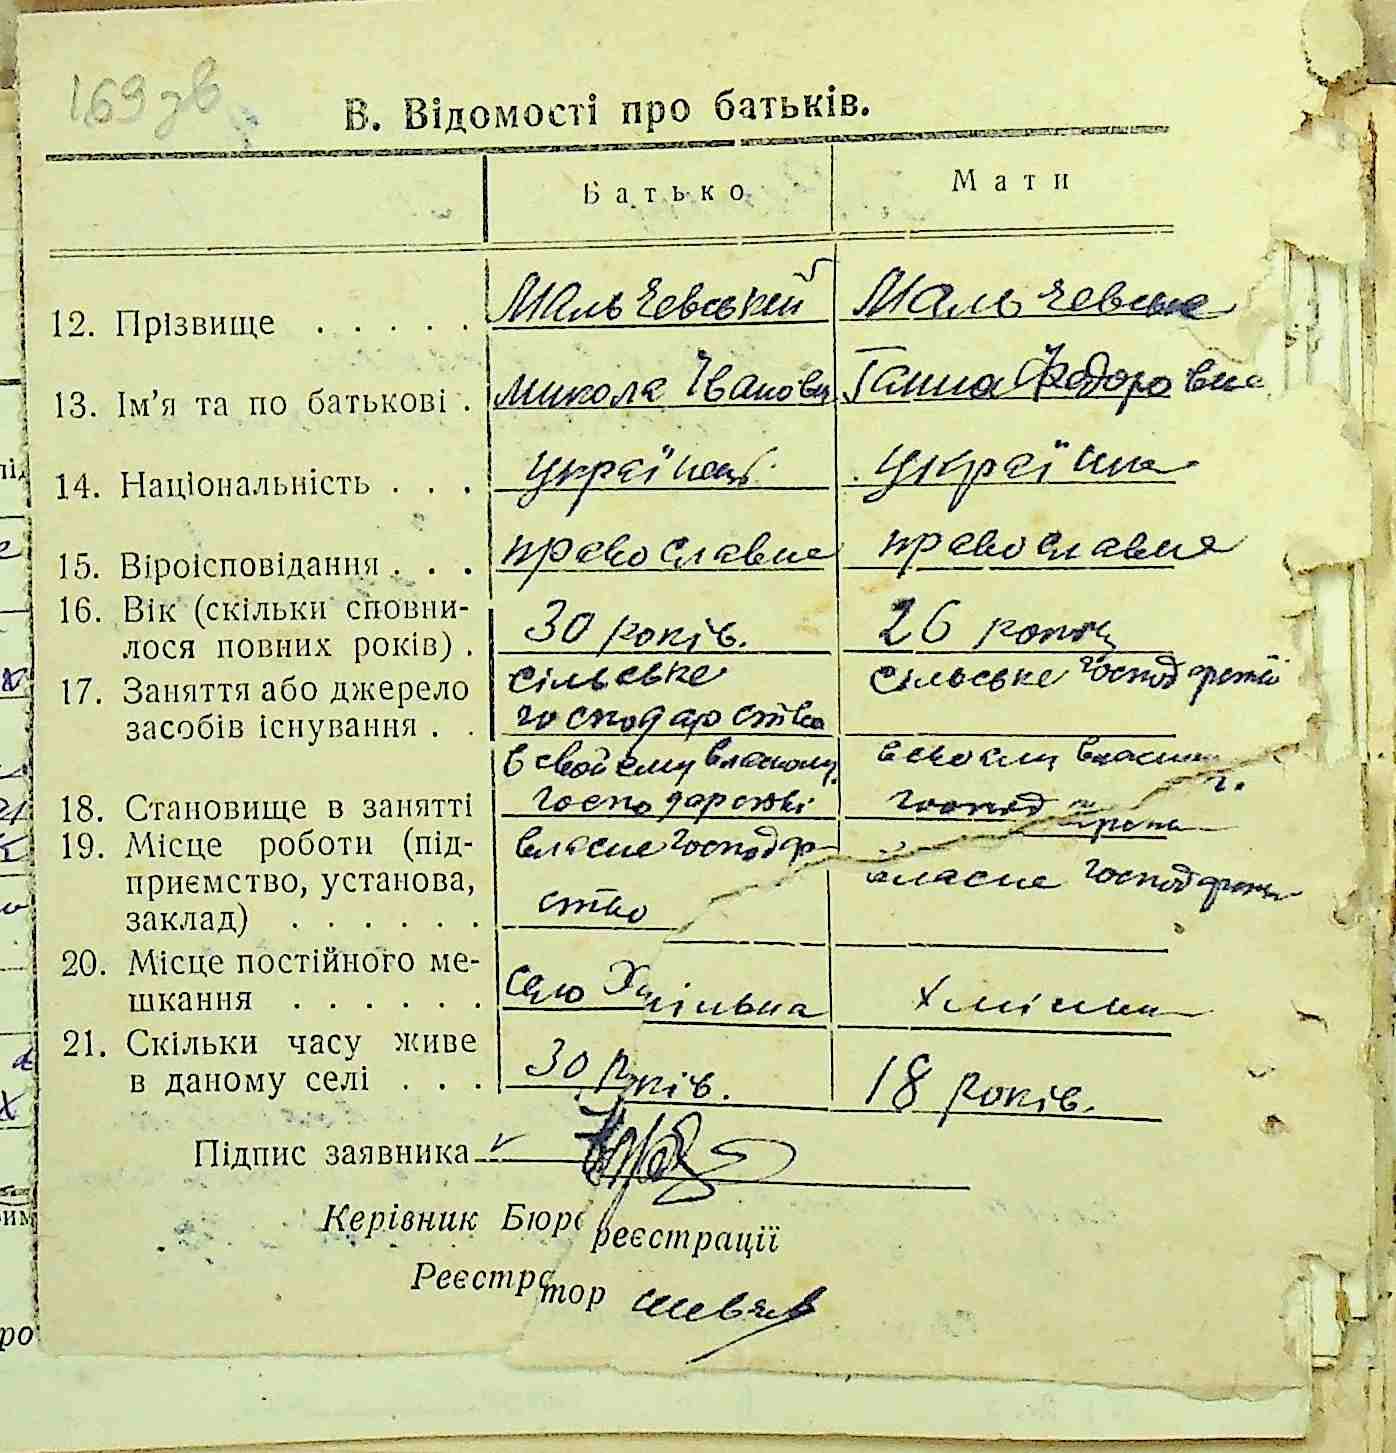 169 зв
В. Відомості про батьків.
Батько Мати
12. Прізвище . . . . . Мальчевський Мальчевська
13. Ім’я та по батькові . Микола Іванович Ганна Федоровна
14. Національність . . . українець українка
15. Віроісповідання . . . православне православне
16. Вік (скільки сповни-
лося повних років) . 30 років. 26 років
17. Заняття або джерело сільське сільське господарство
засобів існування . . господарство
в свойему власному в своєму власному
18. Становище в занятті господарстві господарстві
19. Місце роботи (під- власне господар- власне господарство
приємство, установа,
заклад) . . . . . . ство
20. Місце постійного ме-
шкання . . . . . . село Хмільвка Хмільвка
21. Скільки часу живе
в даному селі . . . 30 років. 18 років.
Підпис заявника
Керівник Бюро реєстрації
Реєстратор